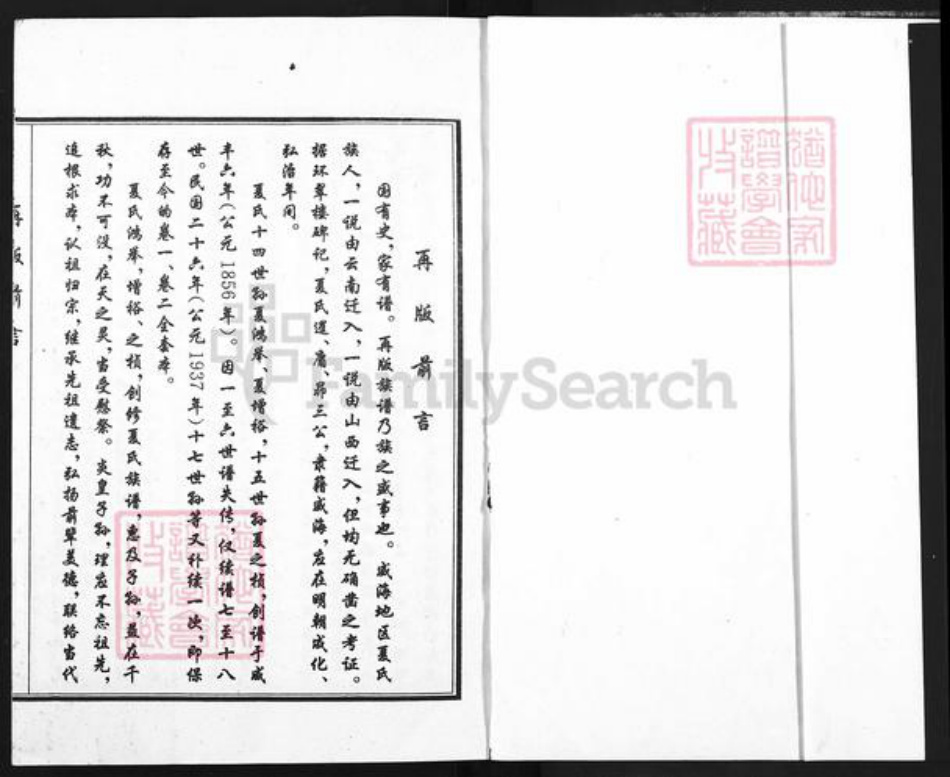 再版前言
国有史，家有谱。再版族谱乃族之盛事也。威海地区夏氏
族人，一说由云南迁入，一说由山西迁入，但均无确凿之考证。
据环翠楼碑记，夏氏道、
昂三公，隶籍威海，应在明朝成化、
弘治年间。
夏氏十四世孙夏鸿举、夏增裕，十五世孙夏之桢，创谱于咸
丰六年（公元1856年）。因一至六世谱失传，仅续谱七至十八
世。民国二十六年（公元1937年）十七世孙等又补续一次，即保
存至今的卷一、卷二全套本。
夏氏鸿举，增裕、之桢，创修夏氏族谱，惠及子孙，益在千
秋，功不可没，在天之灵，当受慰祭。炎皇子孙，理应不忘祖先，
追根求本，认祖归宗，继承先祖遗志，弘扬前辈美德，联络当代
再版前言
犹他家
谱学会
收藏
犹他家
谱学会
收藏
FamilySearch